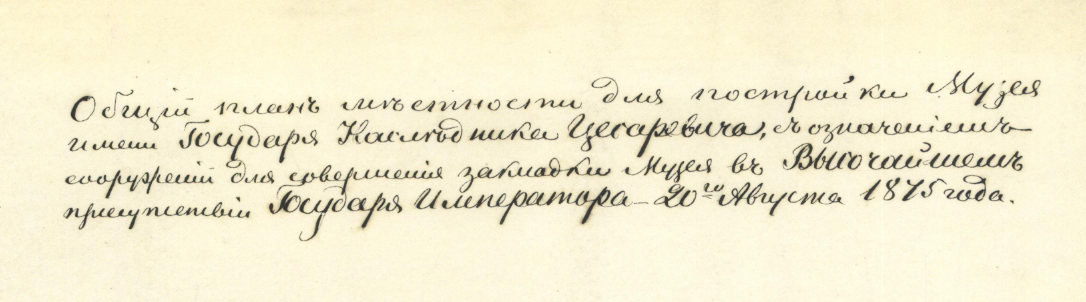 Общій планъ мѣстности для постройки Музея
имени Государя Наслѣдника Цесаревича, съ означеніемъ
сооруженій для совершенія закладки Музея въ Высочайшемъ
присутствіи Государя Императора – 20го Августа 1875 года.